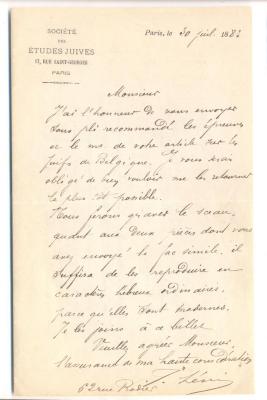 SOCIÉTÉ
DES
ÉTUDES JUIVES
17, RUE SAINT-GEORGES
PARIS
Paris, le 30 juil. 1883
Monsieur
J'ai l'honneur de vous envoyer
sous pli recommandé les épreuves
et le ms. de votre article sur les
Juifs de Belgique. Je vous serais
obligé de bien vouloir me les retourner
le plus tôt possible.
Nous ferons graver le sceau,
quant aux deux pièces dont vous
avez envoyé le fac simile, il
suffira de les reproduire en
caractères hébreux ordinaires,
parce qu'elles sont modernes.
Je les joins à ce billet
Veuillez agréer Monsieur,
l'assurance de ma haute considération
62 rue Rodier